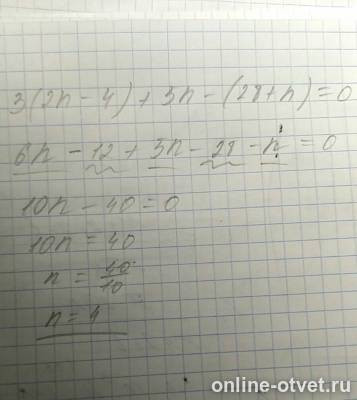 3(2n - 4) + 3n - (28 + n) = 0
6n - 12 + 3n - 28 - n = 0
10n - 40 = 0
10n = 40
n = 40/10
n = 4
online-otvet.ru